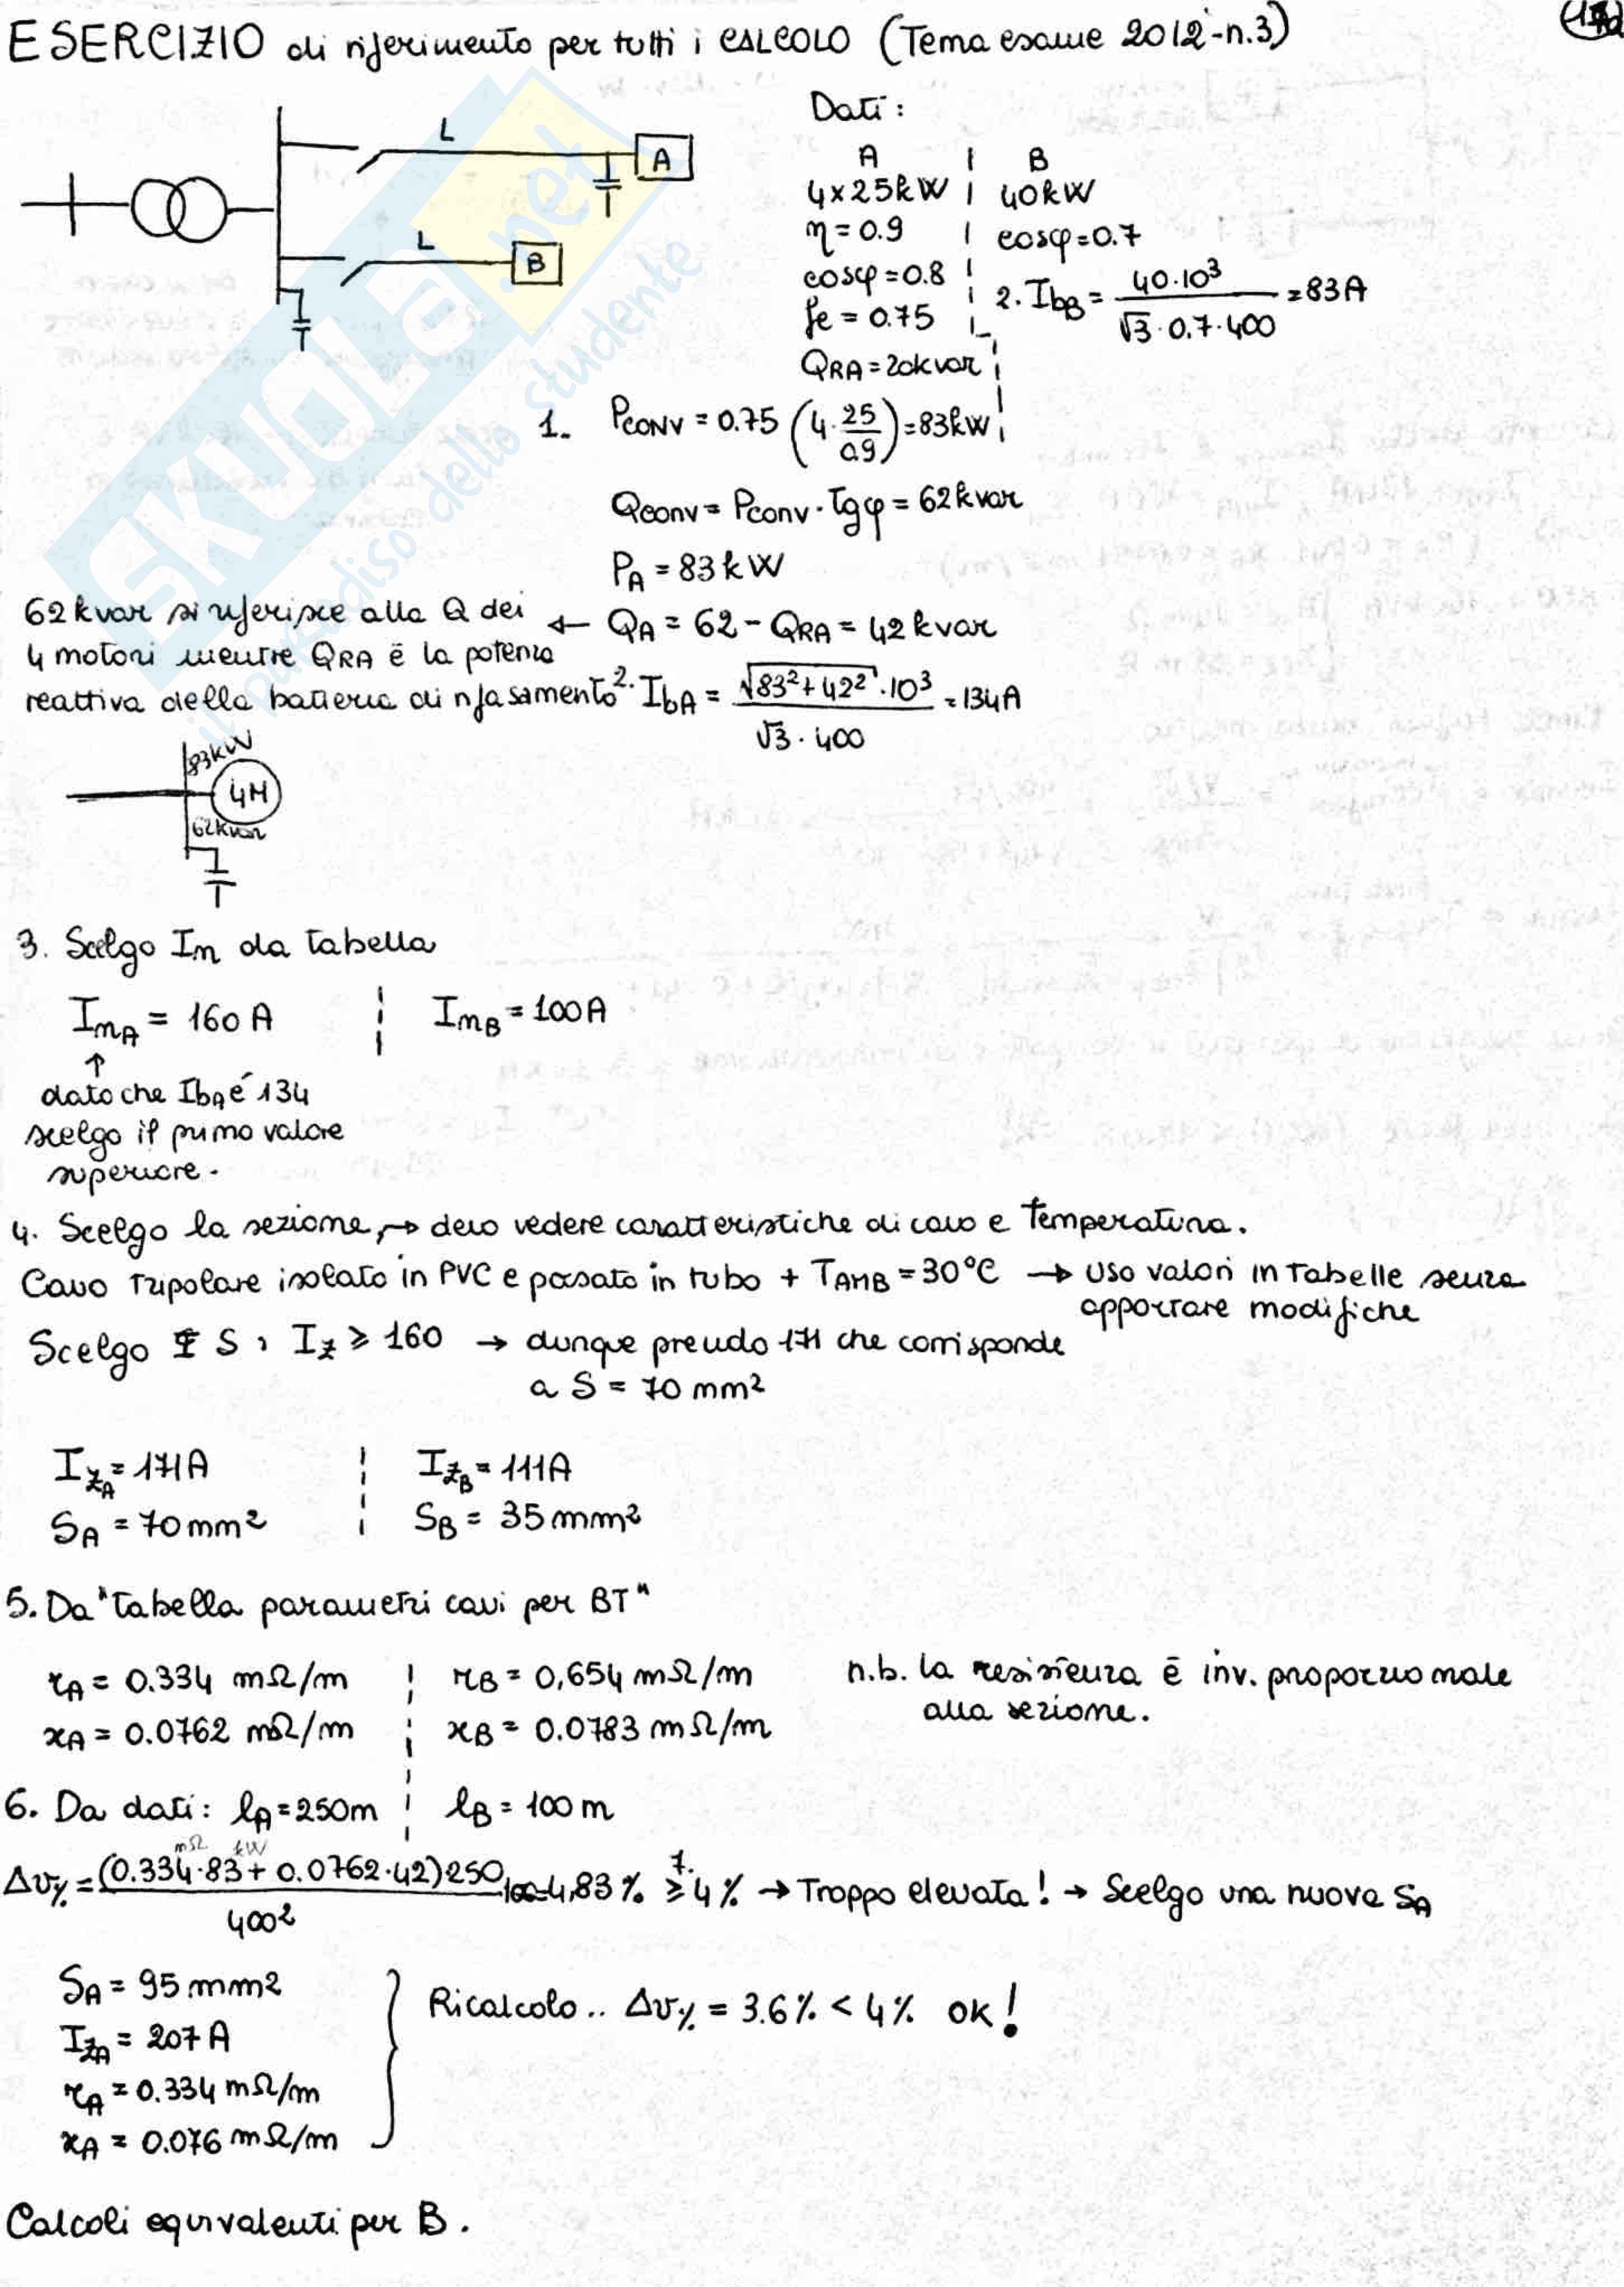 ESERCIZIO di riferimento per tutti i CALCOLO (Tema esame 2012-n.3)
L
A
L
B
Dati:
A | B
4x25kW | 40kW
η=0.9 | cosφ=0.7
cosφ=0.8 | 2. IbB = 40·10³ / √3·0.7·400 = 83A
fe = 0.75
QRA=20kvar
1. PCONV = 0.75 (4·25/0.9)=83kW
Qconv = Pconv·Tgφ = 62kvar
PA = 83kW
62kvar si riferisce alla Q dei ← QA = 62-QRA = 42kvar
4 motori mentre QRA è la potenza
reattiva della batteria di rifasamento 2. IbA = √83²+42²·10³ / √3·400 = 134A
83kW
4M
62kvar
3. Scelgo In da tabella
InA = 160A | InB = 100A
↑
dato che IbA é 134
scelgo il primo valore
superiore.
4. Scelgo la sezione, → devo vedere caratteristiche di cavo e temperatura.
Cavo tripolare isolato in PVC e posato in tubo + TAMB = 30°C → uso valori in tabelle senza
apportare modifiche
Scelgo S, IZ ≥ 160 → dunque prendo 171 che corrisponde
a S = 70 mm²
IZA = 171A | IZB = 111A
SA = 70mm² | SB = 35mm²
5. Da "tabella parametri cavi per BT"
rA = 0.334 mΩ/m | rB = 0,654 mΩ/m n.b. la resistenza è inv. proporzionale
xA = 0.0762 mΩ/m | xB = 0.0783 mΩ/m alla sezione.
6. Da dati: lA=250m | lB = 100m
mΩ kW
Δv% = (0.334·83+0.0762·42)250 / 400² 100=4,83% 7. ≥4% → Troppo elevata! → Scelgo una nuova SA
SA = 95mm²
IZA = 207A
rA = 0.334 mΩ/m
xA = 0.076 mΩ/m
} Ricalcolo.. Δv% = 3.6% < 4% OK!
Calcoli equivalenti per B.
skuola.net
il paradiso dello studente